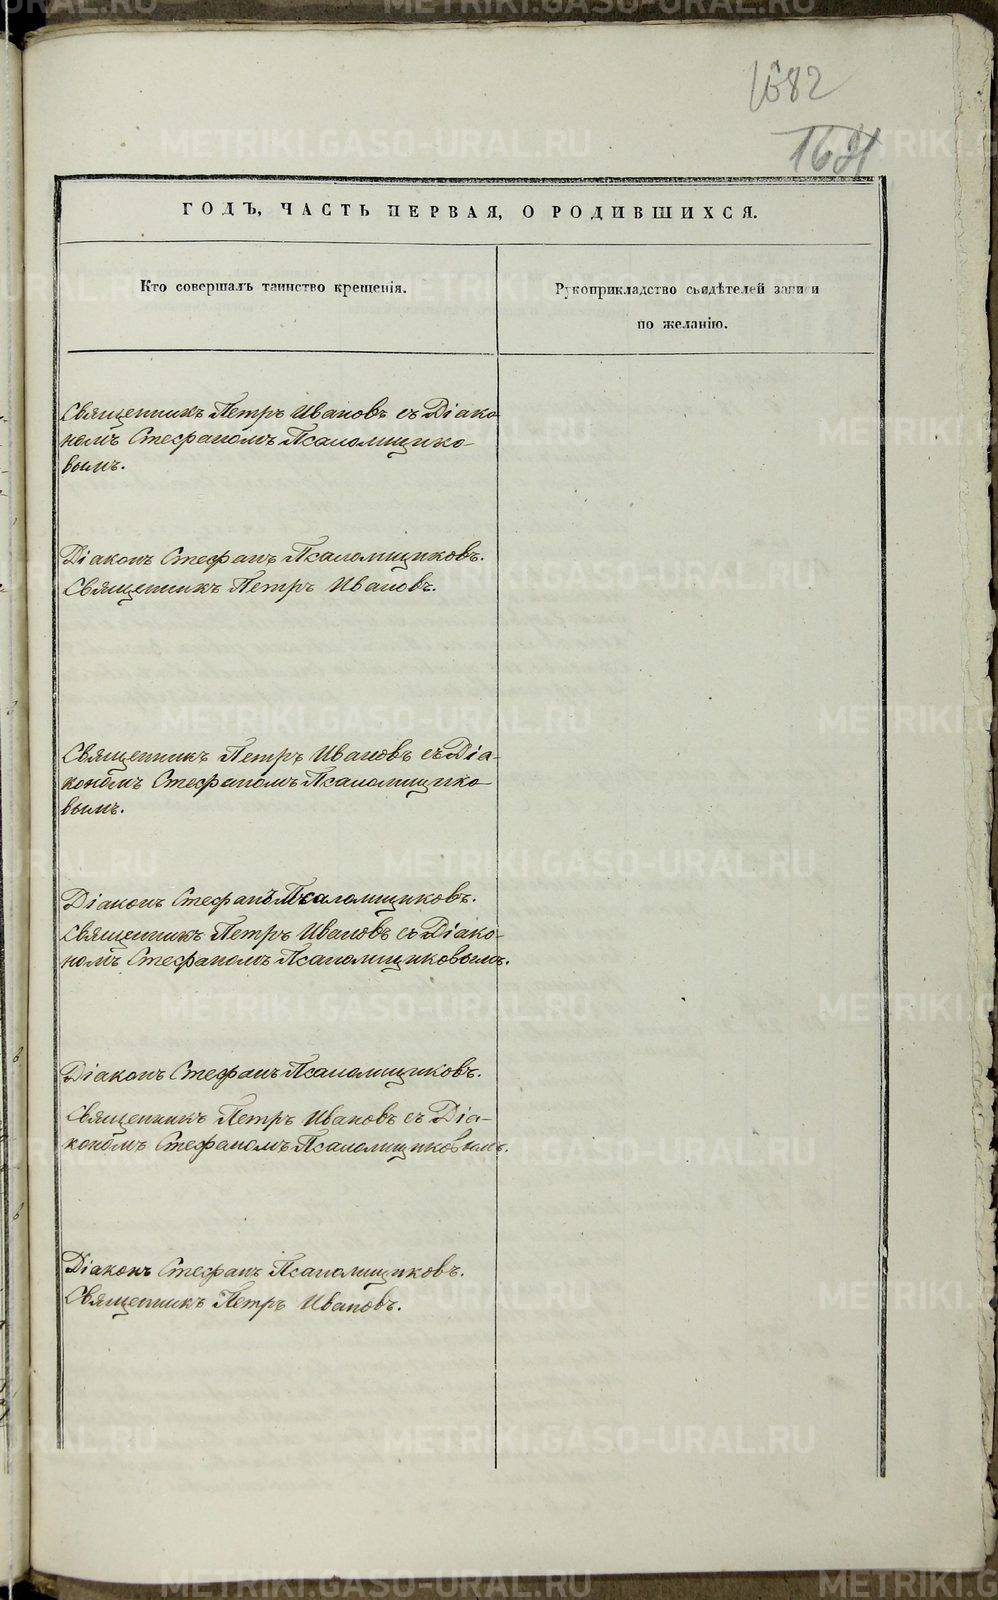 1682
164
ГОДЪ, ЧАСТЬ ПЕРВАЯ, О РОДИВШИХСЯ.
Кто совершалъ таинство крещенія.
Рукоприкладство свидѣтелей записи
по желанію.
Священникъ Петръ Ивановъ съ Діако
номъ Стефаномъ Псаломщико-
вымъ.
Діаконъ Стефанъ Псаломщиковъ.
Священникъ Петръ Ивановъ.
Священникъ Петръ Ивановъ съ Діа-
кономъ Стефаномъ Псаломщико-
вымъ.
Діаконъ Стефанъ Псаломщиковъ.
Священникъ Петръ Ивановъ съ Діако-
номъ Стефаномъ Псаломщиковымъ.
Діаконъ Стефанъ Псаломщиковъ.
Священникъ Петръ Ивановъ съ Діа-
кономъ Стефаномъ Псаломщиковымъ.
Діаконъ Стефанъ Псаломщиковъ.
Священникъ Петръ Ивановъ.
METRIKI.GASO-URAL.RU